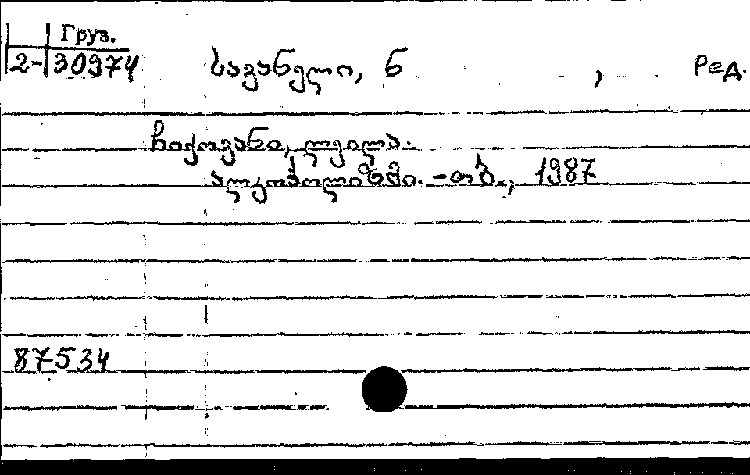 Груз.
2-30974
სავანელი, ნ , Ред.
ჩიქოვანი, ლეილა.
ალკოჰოლიზმი. - თბ., 1987
87534